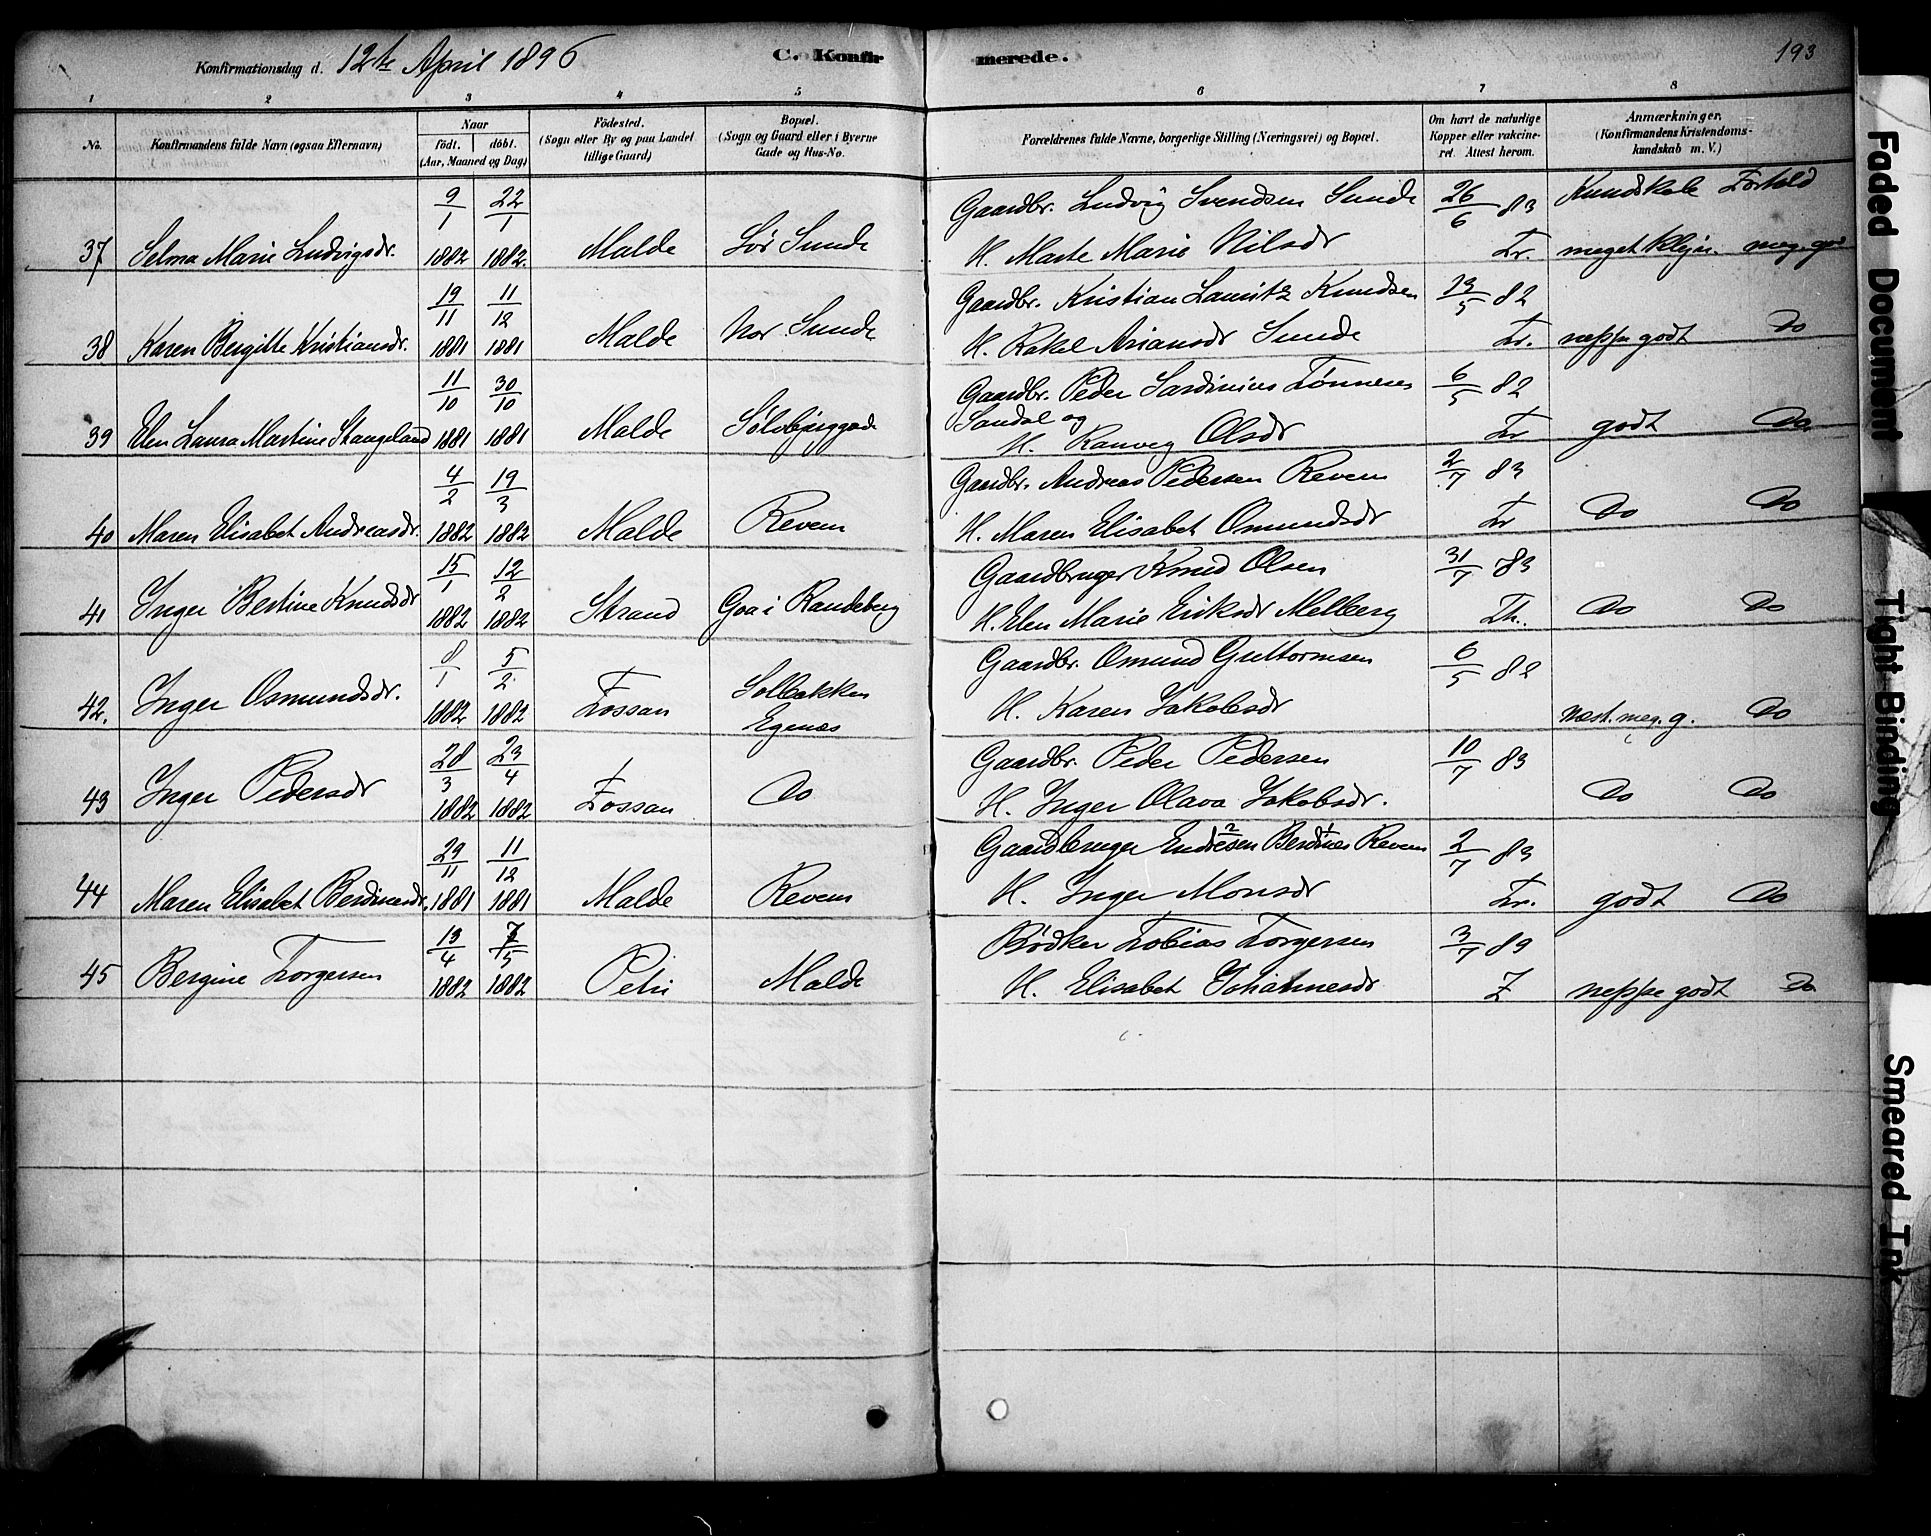 Konfirmationsdag d. 12te April 1896 C. Konfirmerede. 193
1 2 3 4 5 6 7 8
No. Konfirmandens fulde Navn (ogsaa Efternavn) Naar født. døbt. (Aar, Maaned og Dag) Fødested. (Sogn eller By og paa Landet tillige Gaard) Bopæl. (Sogn og Gaard eller i Byerne Gade og Hus-No. Forældrenes fulde Navne, borgerlige Stilling (Næringsvei) og Bopæl. Om havt de naturlige Kopper eller vakcineret. Attest herom. Anmærkninger. (Konfirmandens Kristendomskundskab m. V.)
9/1 22/1 Gaardbr. Ludvig Svendsen Sunde 26/6 83 Kundskab Forhold
37 Selma Marie Ludvigsdr. 1882 1882. Malde Sør Sunde H. Marte Marie Nilsdr Fr. meget Klejn. meg. god
19/11 11/12 Gaardbr. Kristian Lauritz Knudsen 13/5 82
38 Karen Bergitte Kristiansdr. 1881 1881 Malde Nor Sunde H. Rakel Ariansdr Sunde Fr. neppe godt Do
11/10 30/10 Gaardbr. Peder Sardinius Tønnesen 6/5 82
Sandal og
39 Elen Laura Martine Stangeland 1881 1881 Malde Sølvbjerggade H. Ranveg Olsdr Fr godt Do
4/2 19/3 Gaardbr. Andreas Pedersen Revem 2/7 83
40 Maren Elisabet Andreasdr. 1882 1882 Malde Revem H. Maren Elisabet Osmundsdr Fr Do Do
15/1 12/2 Gaardbruger Knud Olsen 31/7 83
41 Inger Bertine Knudsdr 1882 1882 Strand Goa i Randeberg H. Elen Marie Eriksdr Melberg Th. Do Do
8/1 5/2 Gaardbr. Osmund Guttormsen 6/5 82
42. Inger Osmundsdr. 1882 1882 Fossan Solbakken H. Karen Jakobsdr næst. meg. g. Do
Egenæs
28/3 23/4 Gaardbr. Peder Pedersen 10/7 83
43 Inger Pedersdr 1882 1882 Fossan Do H. Inger Olava Jakobsdr. Do Do
29/11 11/12 Gaardbruger Endresen 2 Berdines 1 Revem 2/7 83
44 Maren Elisabet Berdinesdr. 1881 1881 Malde Revem H. Inger Monsdr Fr. godt Do
13/4 7/5 Bødker Tobias Torgersen 3/7 89
45 Bergine Torgersen 1882 1882 Petri Malde H. Elisabet Johannesdr Z neppe godt Do
Faded Document
Tight Binding
Smeared Ink